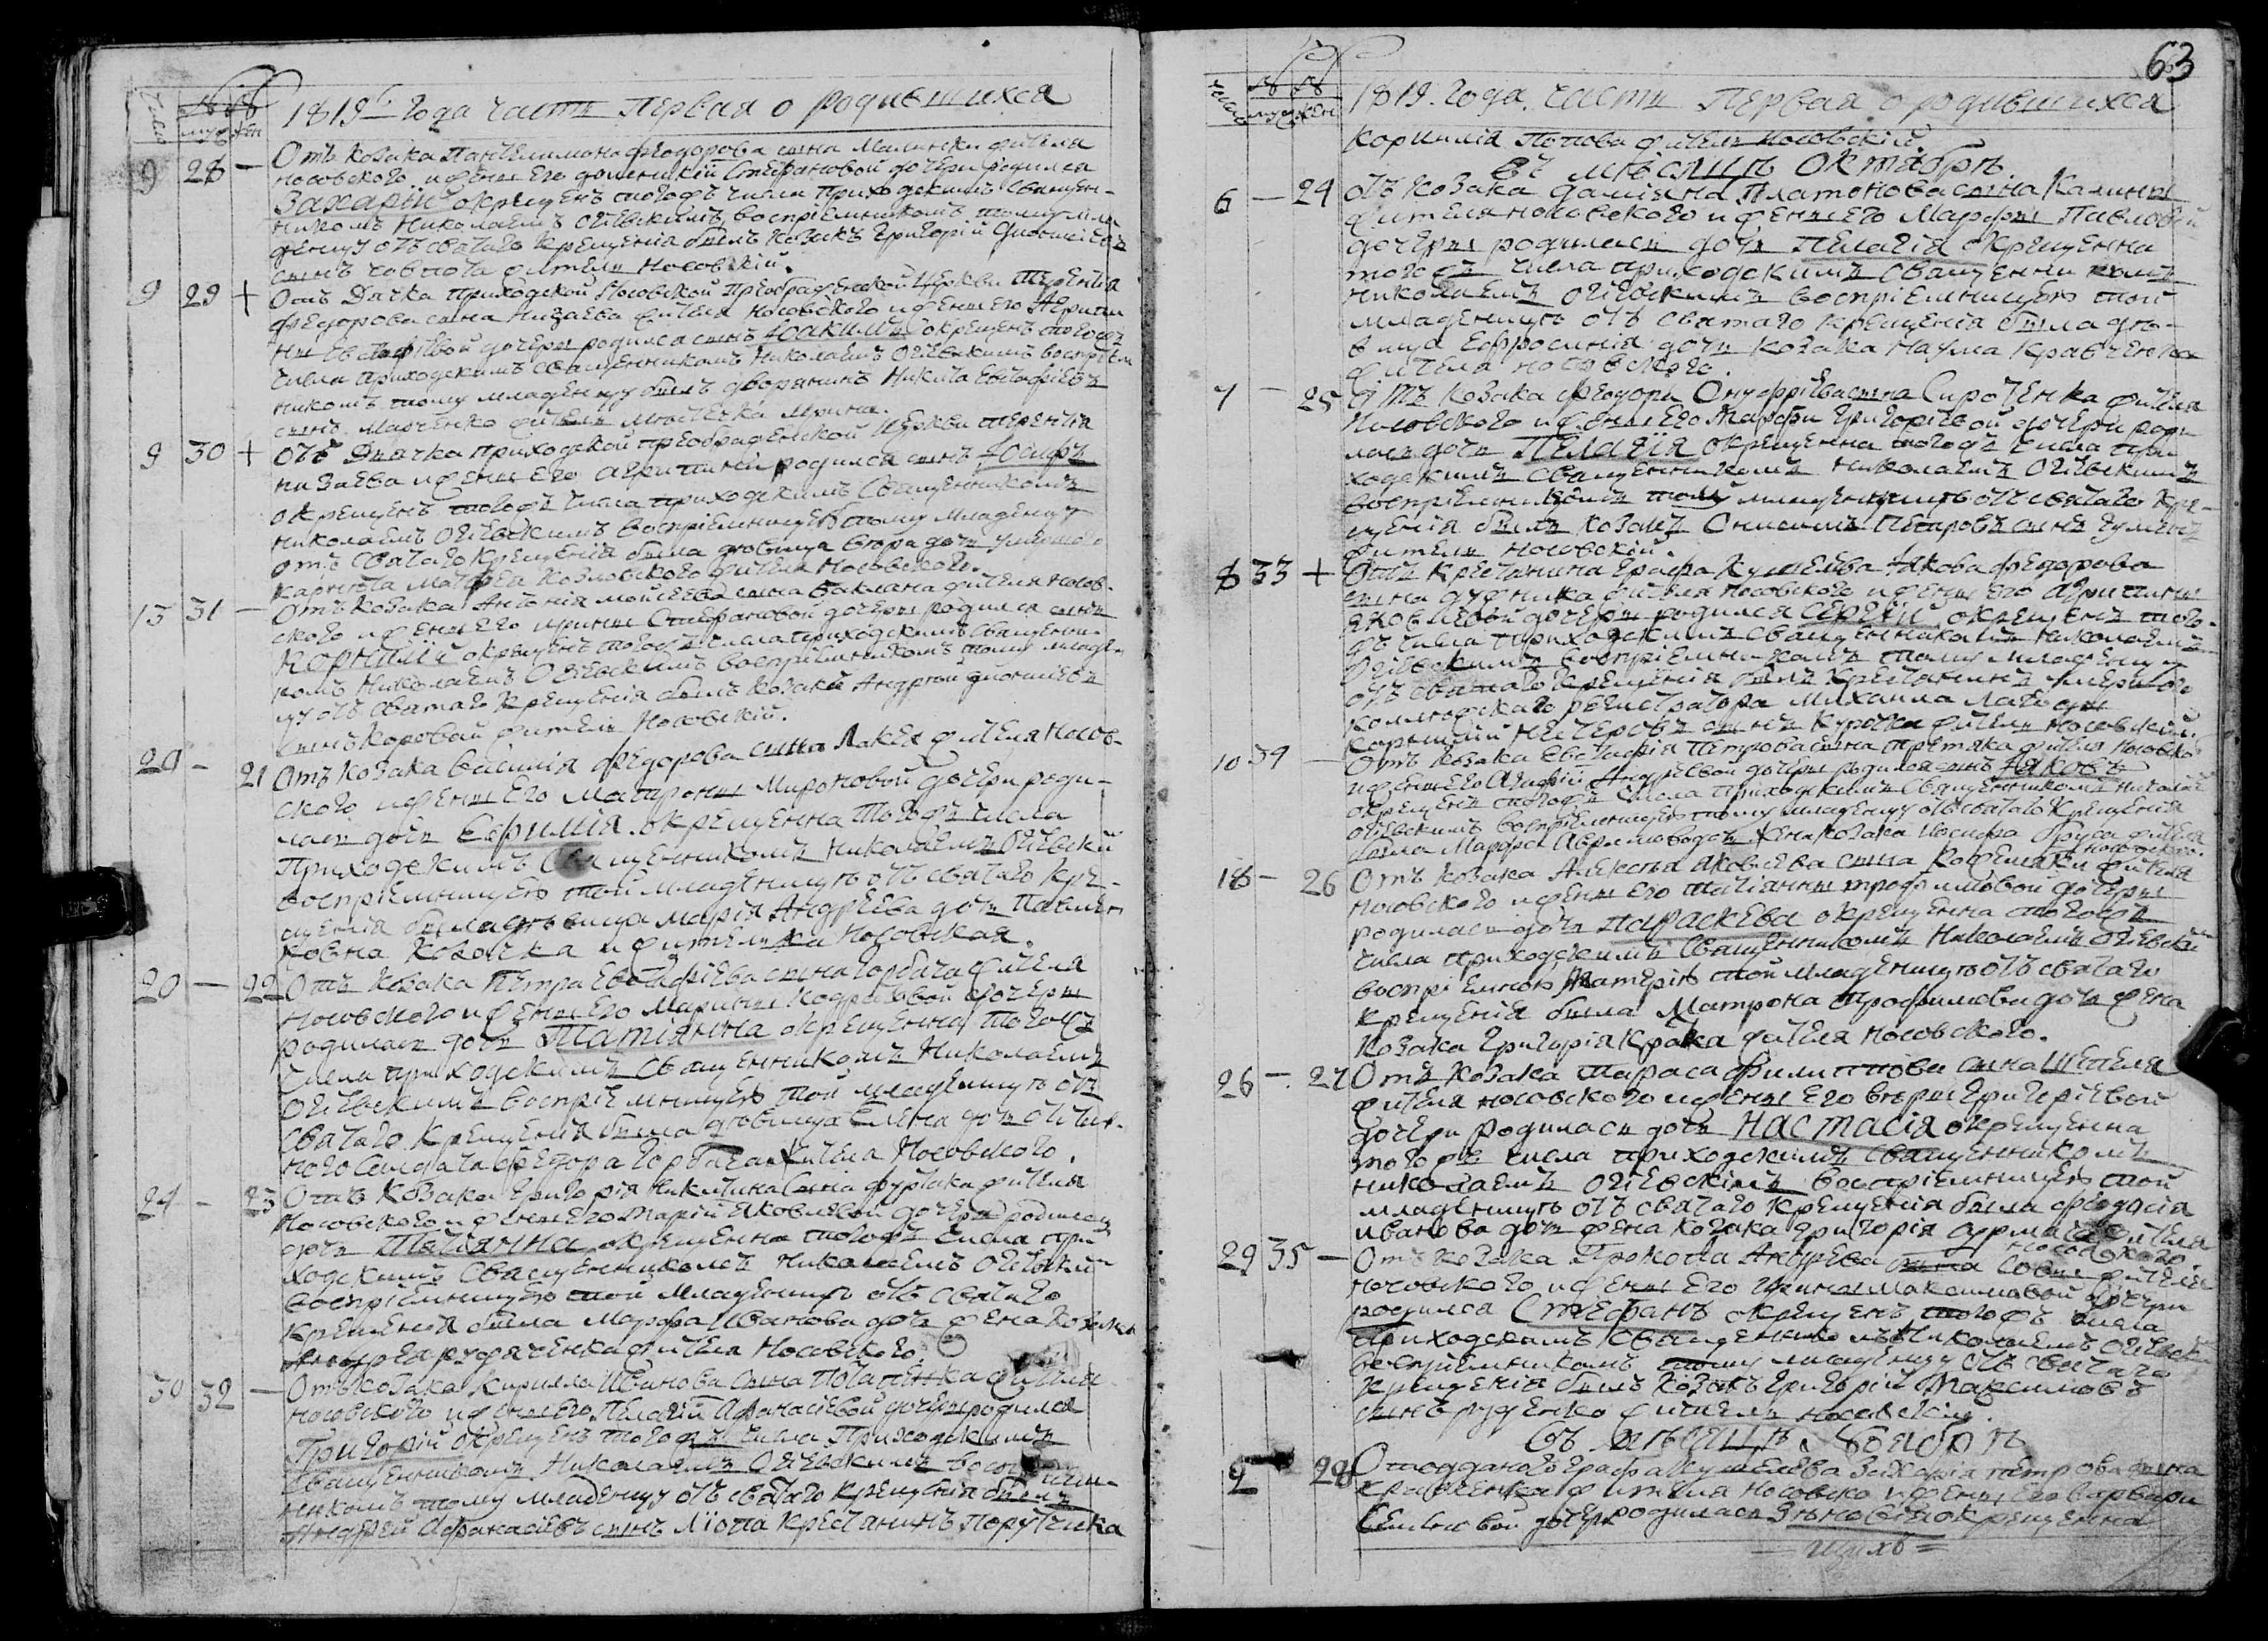 число
№ №
муж жен
1819го года часть первая о родившихся
9 28 — Отъ козака Пантелимона Феодорова сына Малинки жителя
носовского и жены его Стефановой дочери родился
Захарій окрещенъ тогожъ числа приходскимъ священ-
никомъ Николаемъ Огіевскимъ воспріемникомъ тому мла
денцу отъ святаго крещенія былъ козакъ Григорій
сынъ жители носовскій.
9 29 + Отъ Дячка приходской Носовской Преображенской церкви Терентія
Федорова сына Низаева жителя носовского и жены его Агрипи
ны Евстафіевой дочери родился сынъ Іоакимъ окрещенъ тогожъ
числа приходскимъ священникомъ Николаемъ Огіевскимъ воспріем
никомъ тому младенцу былъ дворянинъ Никита Евстафіевъ
сынъ Марченко жители мѣстечка Мрина.
9 30 + Отъ Дьячка приходской преображенской церкви Терентія
Низаева и жены его Агрипины родился сынъ Іосифъ
окрещенъ тогожъ числа приходскимъ священникомъ
Николаемъ Огіевскимъ воспріемницею тому младенцу
отъ святаго крещенія была девица вѣра дочь умершого
Матвея Козловского жителя Носовского.
13 31 — Отъ козака Антонія Мойсеева сына Баклана жителя носов-
ского и жены его ирины Стефановой дочери родился сынъ
Корнилій окрещенъ тогожъ числа приходскимъ священни-
комъ Николаемъ Огіевскимъ воспріемникомъ тому младен-
цу отъ святаго крещенія былъ козакъ Андрей Дионисіевъ
сынъ Коровай жители Носовскій.
20 — 21 Отъ козака василія Федорова сына Лакея жителя Носов-
ского и жены его Матроны Мироновой дочери роди-
лась дочь Евфимія окрещенна тогожъ числа
Приходскимъ Священникомъ Николаемъ Огіевски
воспріемницею той младеницъ отъ святаго кре-
щенія была девица Марія Андреева дочь
козачка и жителька Носовская.
20 — 22 Отъ козака Петра Евстафіева сына Горбача жителя
носовского и жены его Марины Кодратовой дочери
родилась дочь Татіянна окрещенна тогожъ
числа приходскимъ священникомъ Николаемъ
Огіевскимъ воспріемницею той младеницъ отъ
святаго крещенія была девица Елена дочь отстав-
ного Солдата Федора Горбача жителя Носовского.
24 — 23 Отъ козака Григорія Никитина сына Фуртака жителя
Носовского и жены его Маріи Яковлевой дочери родилась
дочь Татіянна окрещенна тогожъ числа при
ходскимъ Священникомъ Николаемъ Огіевским
воспріемницею той младеницъ отъ святаго
крещенія была Марфа Иванова дочь жена козака
Андрея жителя Носовского
30 32 — Отъ козака Кирилла Иванова сына Потапенка жителя
носовского и жены его Пелагіи Афанасіевой дочери родился
Григорій окрещенъ тогожъ числа Приходскимъ
Священникомъ Николаемъ Огіевскимъ воспріем-
никомъ тому младенцу отъ святаго крещенія былъ
Андрей Афанасіевъ сынъ Лiопа крестянинъ Порутчика
63
число
№ №
муж жен
1819. года. часть Первая о родившихса
Корнилія Попова жители носовскій.
Въ мѣсяцѣ Октябрѣ
6 — 24 Отъ козака Даміяна Платонова сына Калины
жителя носовского и жены его Марфы Павловой
дочери родилась дочь Пелагія окрещенна
тогожъ числа приходскимъ священникомъ
Николаемъ Огіевскимъ воспріемницею той
младеницъ отъ святаго крещенія была дѣ-
вица Ефросинія дочь козака Наума Кравченка
жителя носовского.
7 — 25 Отъ козака Феодора Онуфріева сына Сироченка жителя
Носовского и жены его Марфы Григоріевой дочери роди
лась дочь Пелагія окрещенна тогожъ числа при
ходскимъ священникомъ Николаемъ Огіевскимъ
воспріемникомъ тому младеницъ отъ святаго кре-
щенія былъ козакъ Онисимъ Петровъ сынъ
жители носовскій.
8 33 + Отъ Крестянина Графа Кушелева Якова Федорова
сына Дудника жителя носовского и жены его Агрипины
Яковлевой дочери родился Сергій окрещенъ того-
жъ числа приходскимъ священникомъ Николаемъ
Огіевскимъ воспріемникомъ тому младенцу
отъ святаго крещенія былъ Крестянинъ умершого
колежского регистратора Михаила
Корнилій Нестеровъ сынъ Курочка жители носовскій.
10 34 — Отъ козака Евстафія Петрова сына жителя носовско
и жены его Агафіи Андреевой дочери родился сынъ Яковъ
окрещенъ тогожъ числа приходскимъ священникомъ Николаем
Огіевскимъ воспріемницею тому младенцу отъ святаго крещенія
была Марфа жена козака Иосифа жителя
носовского.
18 — 26 Отъ козака Алексѣя Яковлева сына Кожемяки жителя
Носовского и жены его татіянны трофимовой дочери
родилась дочь Параскева окрещенна тогожъ
числа приходскимъ священникомъ Николаемъ Огіевски
воспріемною матерію той младеницъ отъ святаго
крещенія была Матрона Трофимова дочь жена
козака Григорія жителя носовского.
26 — 27 Отъ козака тараса Филиппова сына Шепеля
жителя носовского и жены его вѣры Григоріевой
дочери родилась дочь Настасія окрещенна
тогожъ числа приходскимъ священникомъ
Николаемъ Огіевскімъ воспріемницею той
младеницъ отъ святаго крещенія была Феодосія
Иванова дочь жена козака Григорія жителя
носовского.
29 35 — Отъ козака Прокопа Андреева сына Совы жителя
носовского и жены его Ирины Максимовой дочери
родился Стефанъ окрещенъ тогожъ числа
приходскимъ священникомъ Николаемъ Огіевским
воспріемникомъ тому младенцу отъ святаго
крещенія былъ козакъ Григорій Максимовъ
сынъ Руденко жители носовскій.
Въ мѣсяцѣ Ноябрѣ
2 28 Отподданого Графа Кушелева Захарія петрова сына
Кравченка жителя носовско и жены его варвары
дочери родилась Зѣновія окрещенна